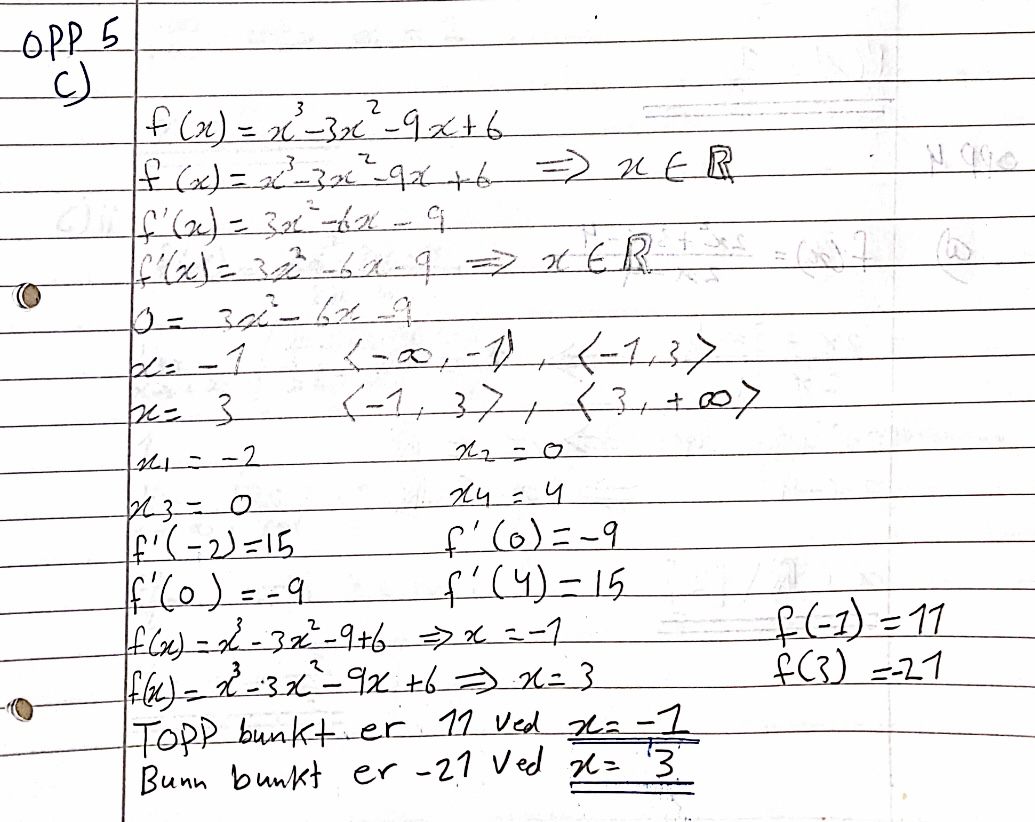 OPP 5
c)
f(x) = x³-3x²-9x+6
f(x) = x³-3x²-9x+6 ⇒ x ∈ ℝ
f'(x) = 3x²-6x-9
f'(x) = 3x²-6x-9 ⇒ x ∈ ℝ
0 = 3x²-6x-9
x = -1 〈-∞, -1〉, 〈-1, 3〉
x = 3 〈-1, 3〉, 〈3, +∞〉
x₁ = -2 x₂ = 0
x₃ = 0 x₄ = 4
f'(-2) = 15 f'(0) = -9
f'(0) = -9 f'(4) = 15
f(x) = x³-3x²-9+6 ⇒ x = -1 f(-1) = 11
f(x) = x³-3x²-9x+6 ⇒ x = 3 f(3) = -21
TOPP bunkt er 11 ved x = -1
Bunn bunkt er -21 ved x = 3